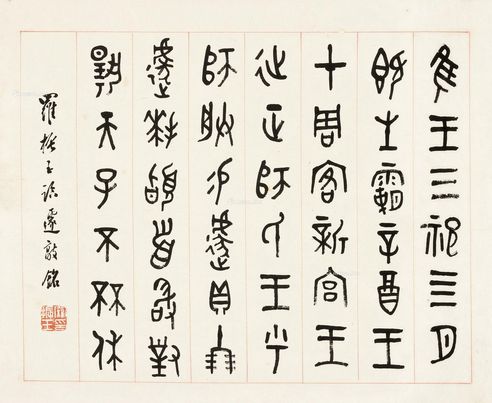 隹王三祀四月
既生霸辛酉王
才周客新宮王
征正師氏王乎
師朕易遽貝朋
遽拜稽首敢對
揚天子不㔻休
羅振玉臨遽敦銘